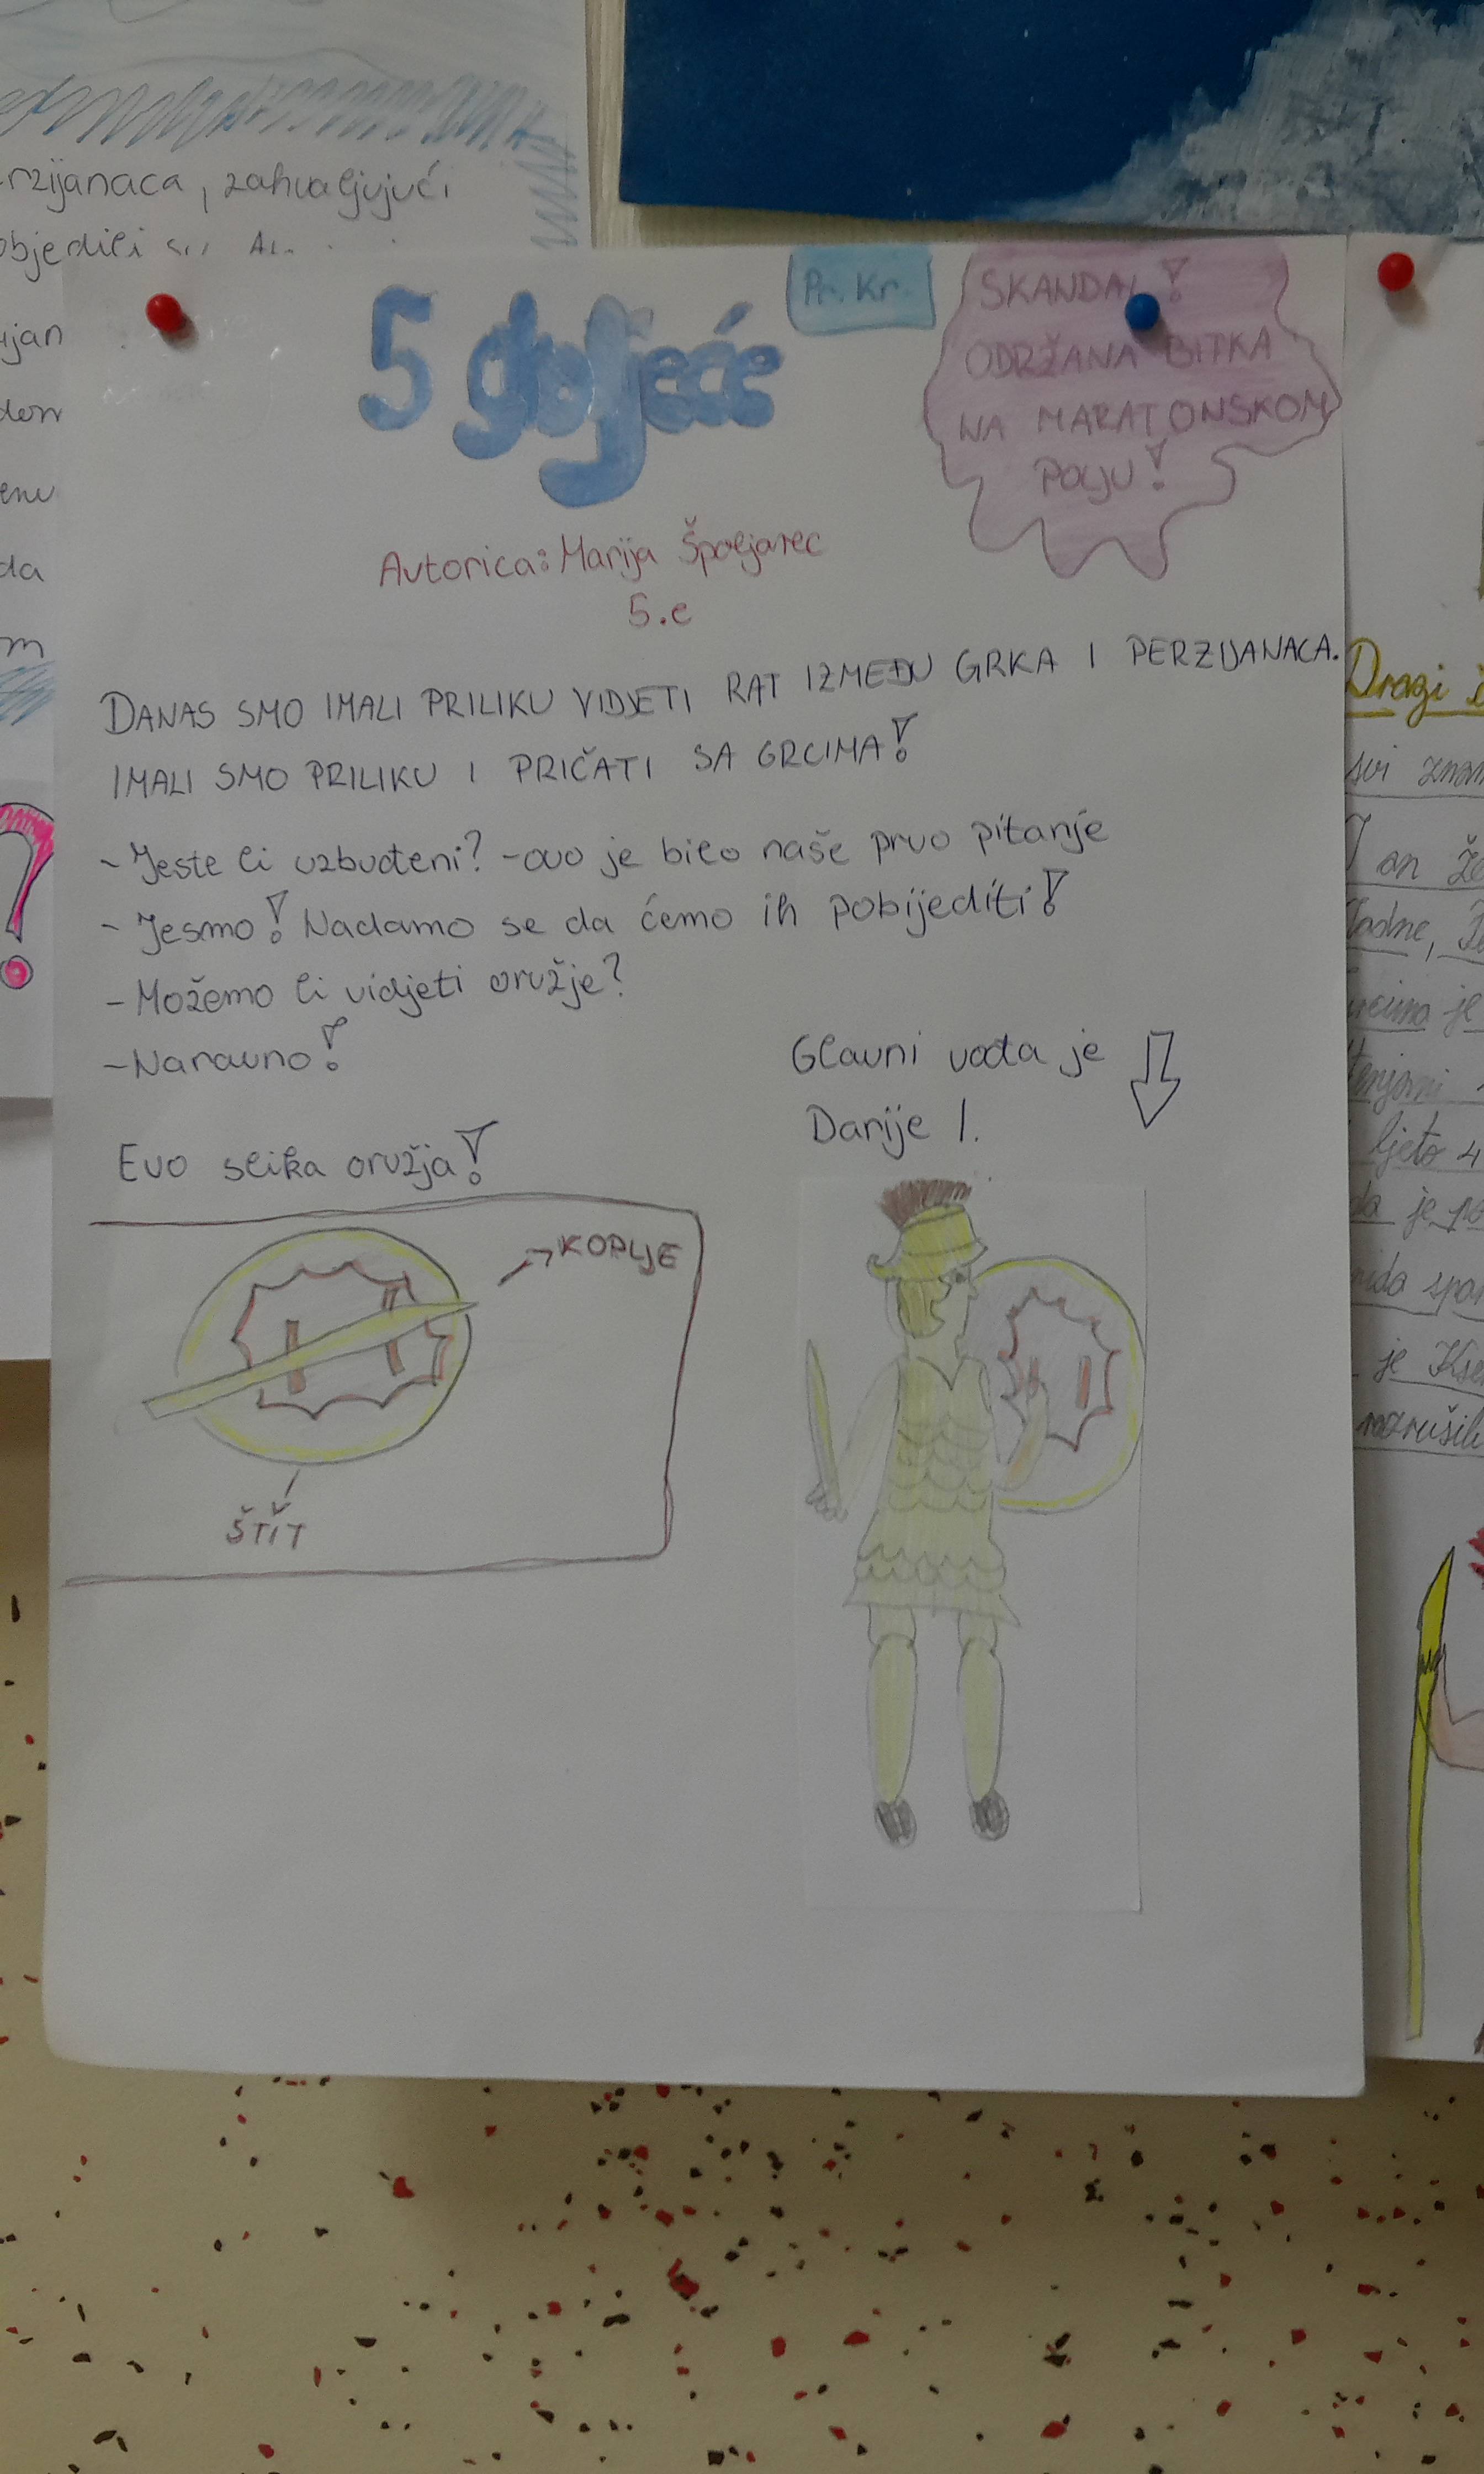 zahvaljujući
5 stoljeće
Pr. Kr.
SKANDAL!
ODRŽANA BITKA
NA MARATONSKOM
POLJU!
Autorica: Marija Špoljarec
5.e
DANAS SMO IMALI PRILIKU VIDJETI RAT IZMEĐU GRKA I PERZIJANACA.
IMALI SMO PRILIKU I PRIČATI SA GRCIMA!
- Jeste li uzbuđeni? - ovo je bilo naše prvo pitanje
- Jesmo! Nadamo se da ćemo ih pobijediti!
- Možemo li vidjeti oružje?
- Naravno!
Glavni vođa je
Darije I.
Evo slika oružja!
KOPLJE
ŠTIT
Dragi
svi
je
ljeto
je
je
razrušili